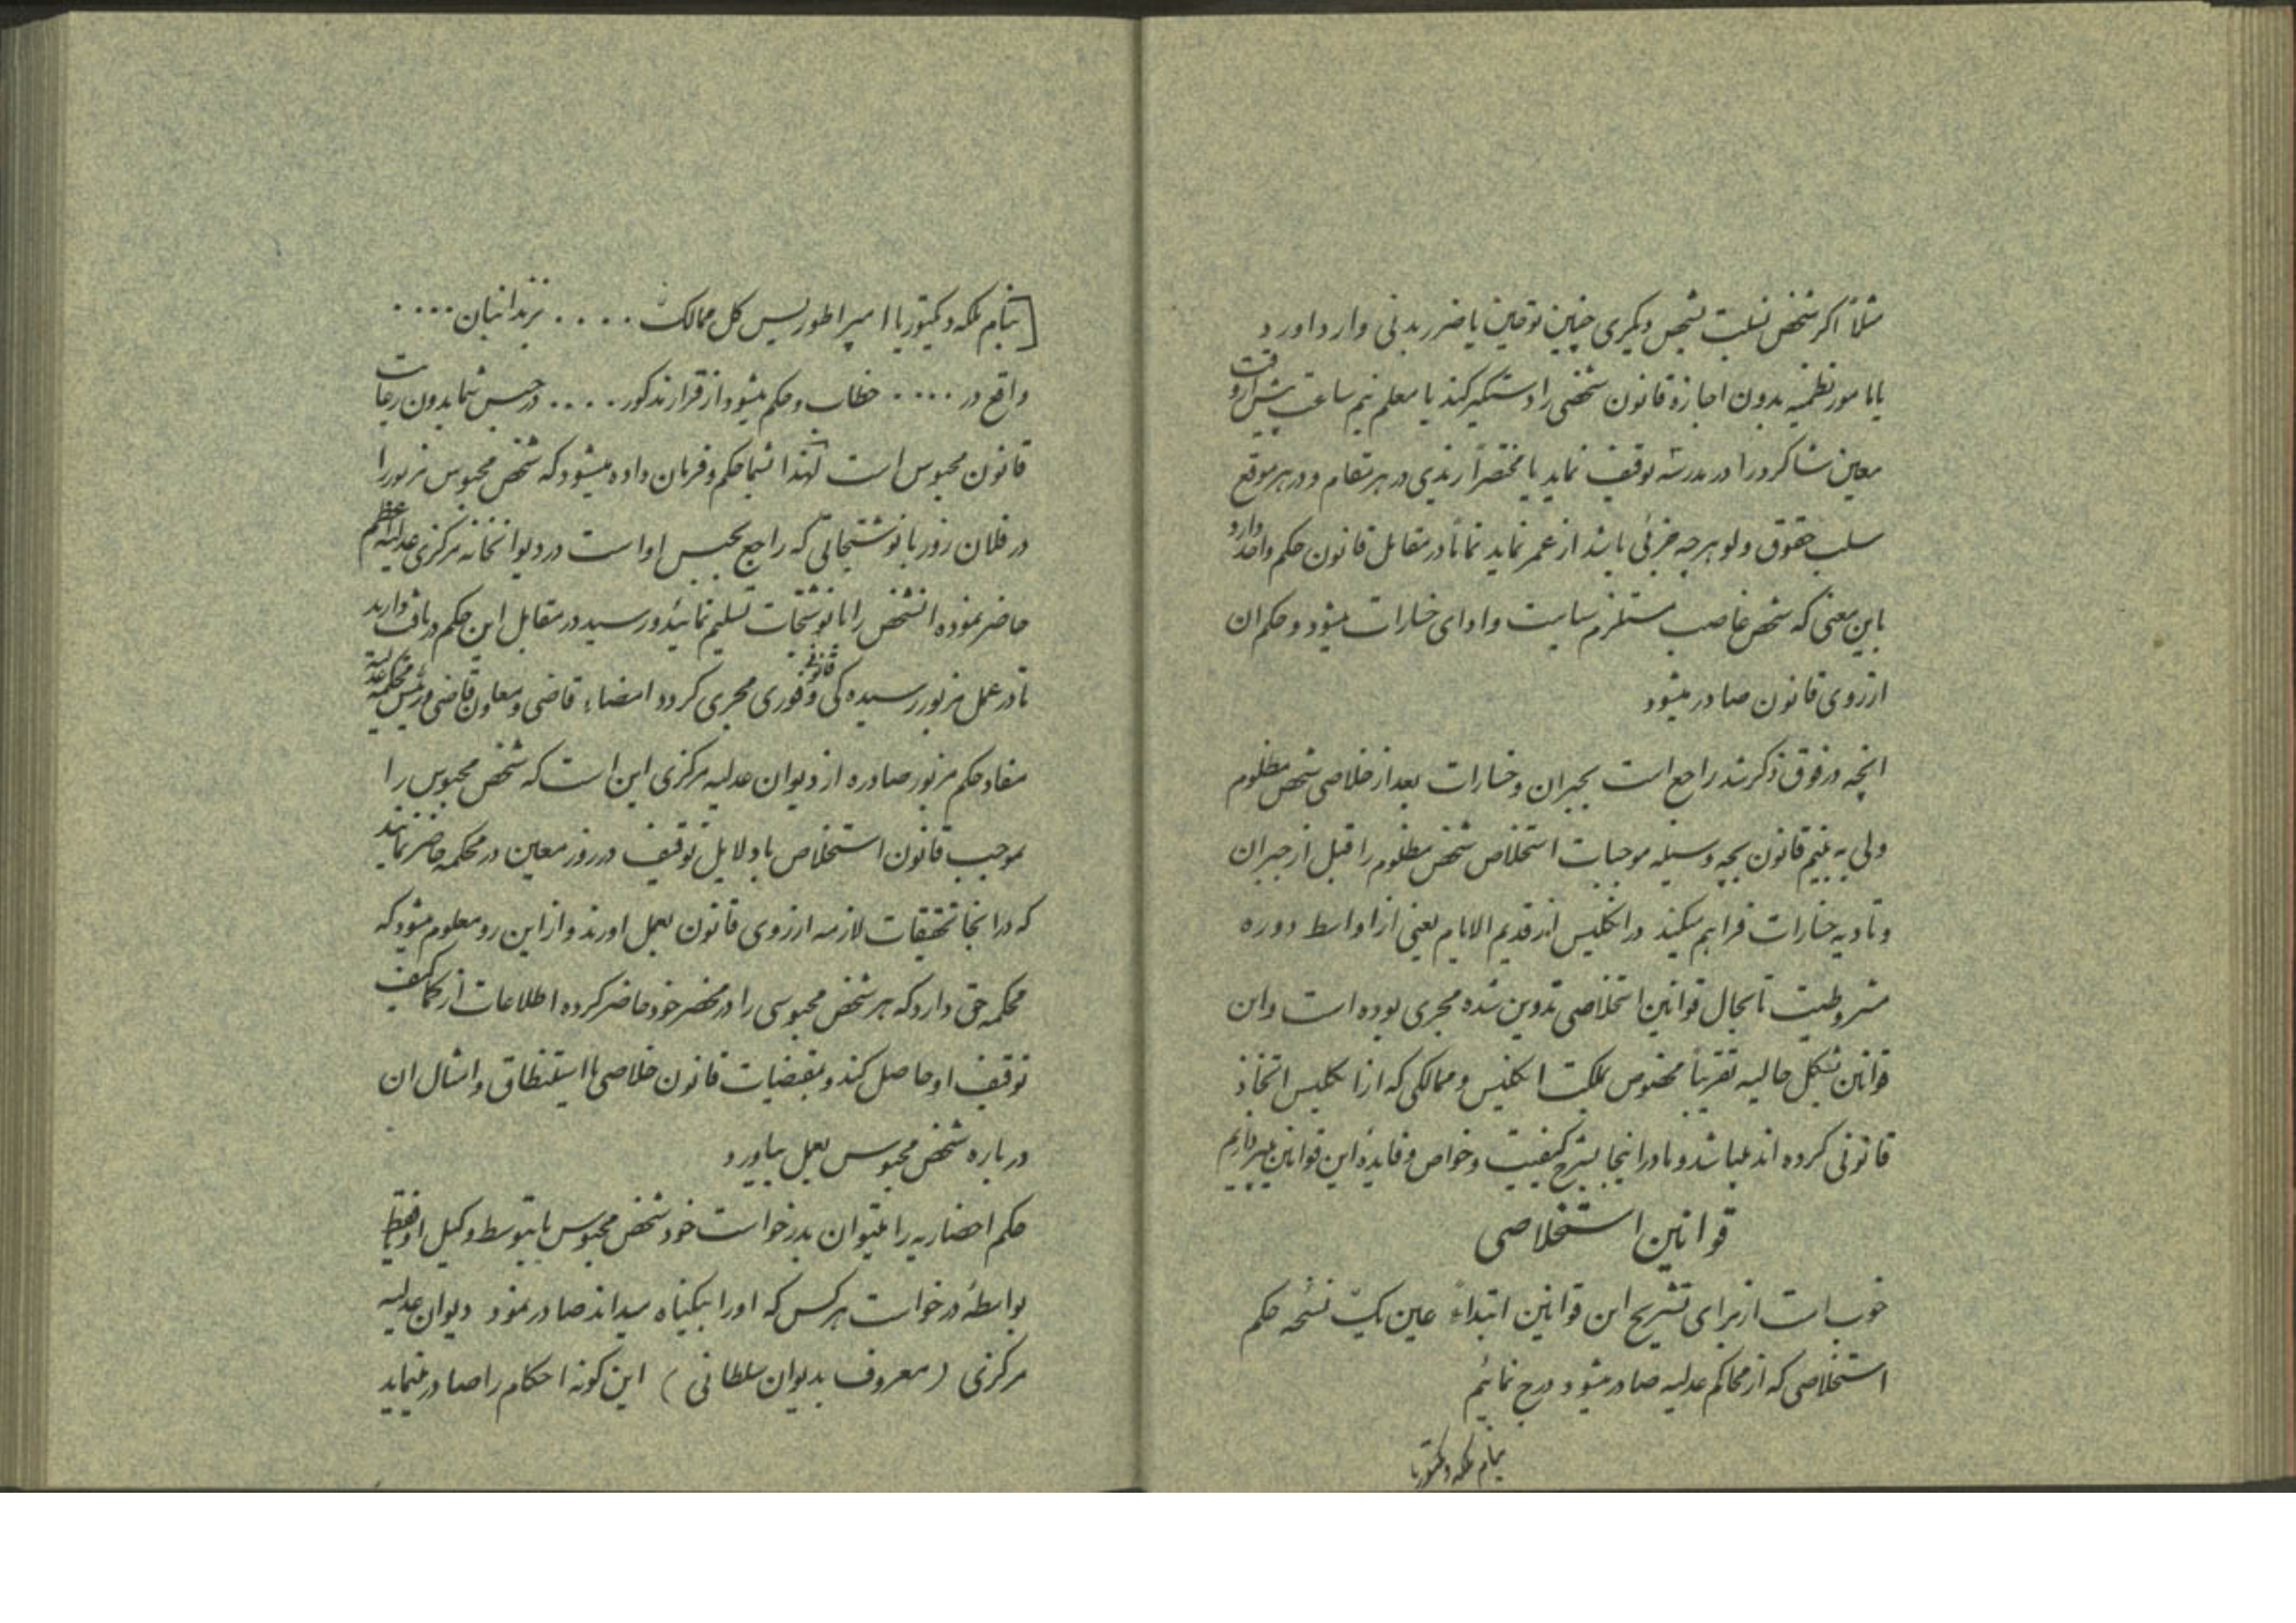 مثلاً اگر شخص نسبت بشخص دیگری چنین توهین یا ضرر بدنی وارد اورد
یا مامور نظمیه بدون اجازه قانون شخصی را دستگیر کند یا معلم نیم ساعت بیش از وقت
معین شاگرد را در مدرسه توقیف نماید یا مختصراً زیدی در هر مقام و در هر موقع
سلب حقوق ولو هر چه جزئی باشد از عمر نماید تماماً در مقابل قانون حکم واحد دارد
باین معنی که شخص غاصب مستلزم سیاست و ادای خسارات میشود و حکم ان
از روی قانون صادر میشود
انچه در فوق ذکر شد راجع است بجبران و خسارات بعد از خلاصی شخص مظلوم
ولی به بینیم قانون بچه وسیله موجبات استخلاص شخص مظلوم را قبل از جبران
و تادیه خسارات فراهم میکند در انگلیس از قدیم الایام یعنی از اواسط دوره
مشروطیت تا بحال قوانین استخلاصی تدوین شده مجری بوده است و این
قوانین بشکل حالیه تقریباً مخصوص مملکت انگلیس و ممالکی که از انگلیس اتخاذ
قانونی کرده اند میباشد و ما در اینجا بشرح کیفیت و خواص و فایده این قوانین میپردازیم
قوانین استخلاصی
خوب است از برای تشریح این قوانین ابتداءً عین یک نسخه حکم
استخلاصی که از محاکم عدلیه صادر میشود درج نمائیم
بنام ملکه وکتوریا
[بنام ملکه ویکتوریا امپراطوریس کل ممالک . . . . بزندانبان . . . .
واقع در . . . . خطاب و حکم میشود از قرار مذکور . . . . در حبس شما بدون رعایت
قانون محبوس است لهذا بشما حکم و فرمان داده میشود که شخص محبوس مزبور را
در فلان روز با نوشتجاتی که راجع بحبس او است در دیوانخانه مرکزی عدلیه اعظم
حاضر نموده انشخص را با نوشتجات تسلیم نمائید و رسید در مقابل این حکم دریافت دارید
تا در عمل مزبور رسیدگی قانونی و فوری مجری گردد امضاء قاضی و معاون قاضی و رئیس محکمه عدلیه
مفاد حکم مزبور صادره از دیوان عدلیه مرکزی این است که شخص محبوس را
بموجب قانون استخلاص با دلایل توقیف در روز معین در محکمه حاضر نمایند
که در انجا تحقیقات لازمه از روی قانون بعمل اورند و از این رو معلوم میشود که
محکمه حق دارد که هر شخص محبوسی را در محضر خود حاضر کرده اطلاعات از کماکیف
توقیف او حاصل کند و بمقتضیات قانون خلاصی یا استنطاق و امثال ان
درباره شخص محبوس بعمل بیاورد
حکم احضاریه را میتوان بدرخواست خود شخص محبوس یا بتوسط وکیل او یا فقط
بواسطهٔ درخواست هر کس که او را بیگناه میداند صادر نمود دیوان عدلیه
مرکزی (معروف بدیوان سلطانی) این گونه احکام را صادر مینماید